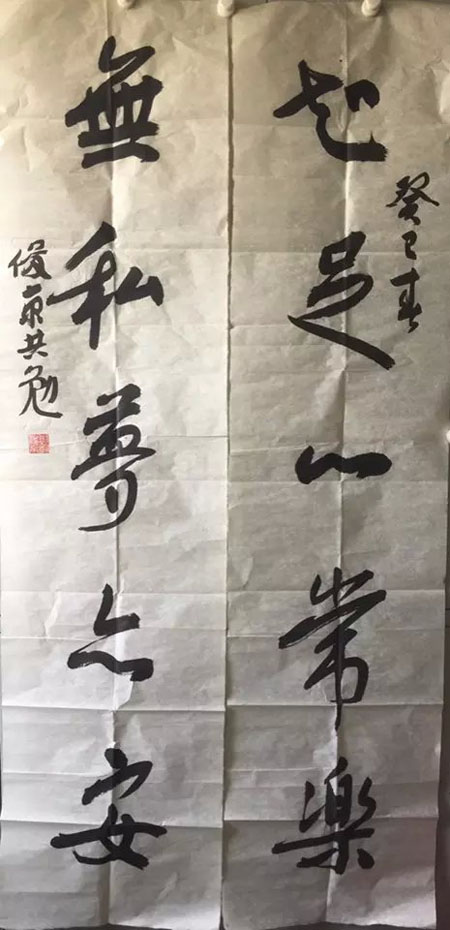 癸巳春
知足心常樂
無私夢亦安
俊京共勉